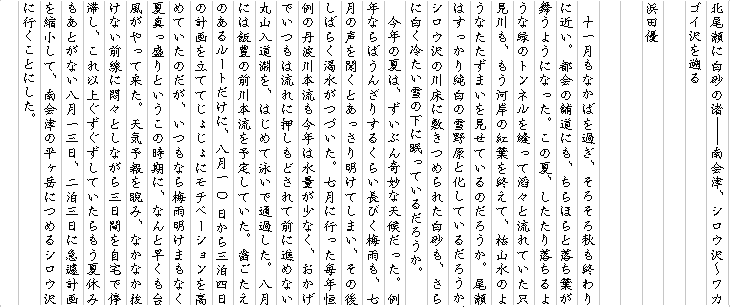 北尾瀬に白砂の渚――南会津、シロウ沢～ワカ
ゴイ沢を遡る
浜田優
　十一月もなかばを過ぎ、そろそろ秋も終わり
に近い。都会の舗道にも、ちらほらと落ち葉が
舞うようになった。この夏、したたり落ちるよ
うな緑のトンネルを縫って滔々と流れていた只
見川も、もう河岸の紅葉を終えて、枯山水のよ
うなたたずまいを見せているのだろうか。尾瀬
はすっかり純白の雪野原と化しているだろうか
シロウ沢の川床に敷きつめられた白砂も、さら
に白く冷たい雪の下に眠っているだろうか。
　今年の夏は、ずいぶん奇妙な天候だった。例
年ならばうんざりするくらい長びく梅雨も、七
月の声を聞くとあっさり明けてしまい、その後
しばらく渇水がつづいた。七月に行った毎年恒
例の丹波川本流も今年は水量が少なく、おかげ
でいつもは流れに押しもどされて前に進めない
丸山入道淵を、はじめて泳いで通過した。八月
には飯豊の前川本流を予定していた。歯ごたえ
のあるルートだけに、八月一〇日から三泊四日
の計画を立ててじょじょにモチベーションを高
めていたのだが、いつもなら梅雨明けまもなく
夏真っ盛りというこの時期に、なんと早くも台
風がやって来た。天気予報を睨み、なかなか抜
けない前線に悶々としながら三日間を自宅で停
滞し、これ以上ぐずぐずしていたらもう夏休み
もあとがない八月一三日、二泊三日に急遽計画
を縮小して、南会津の平ヶ岳につめるシロウ沢
に行くことにした。